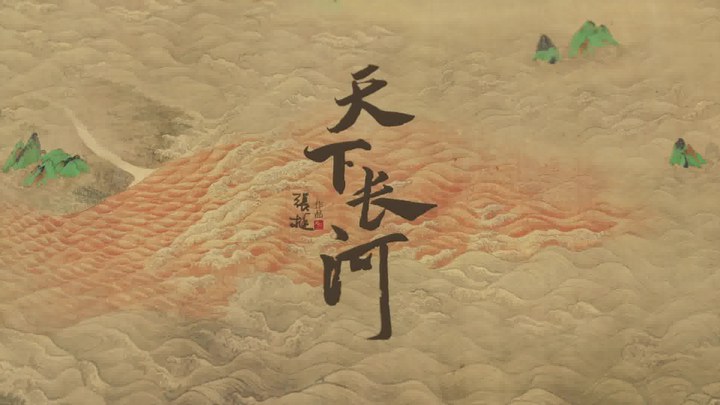 天下长河
張挺
作品